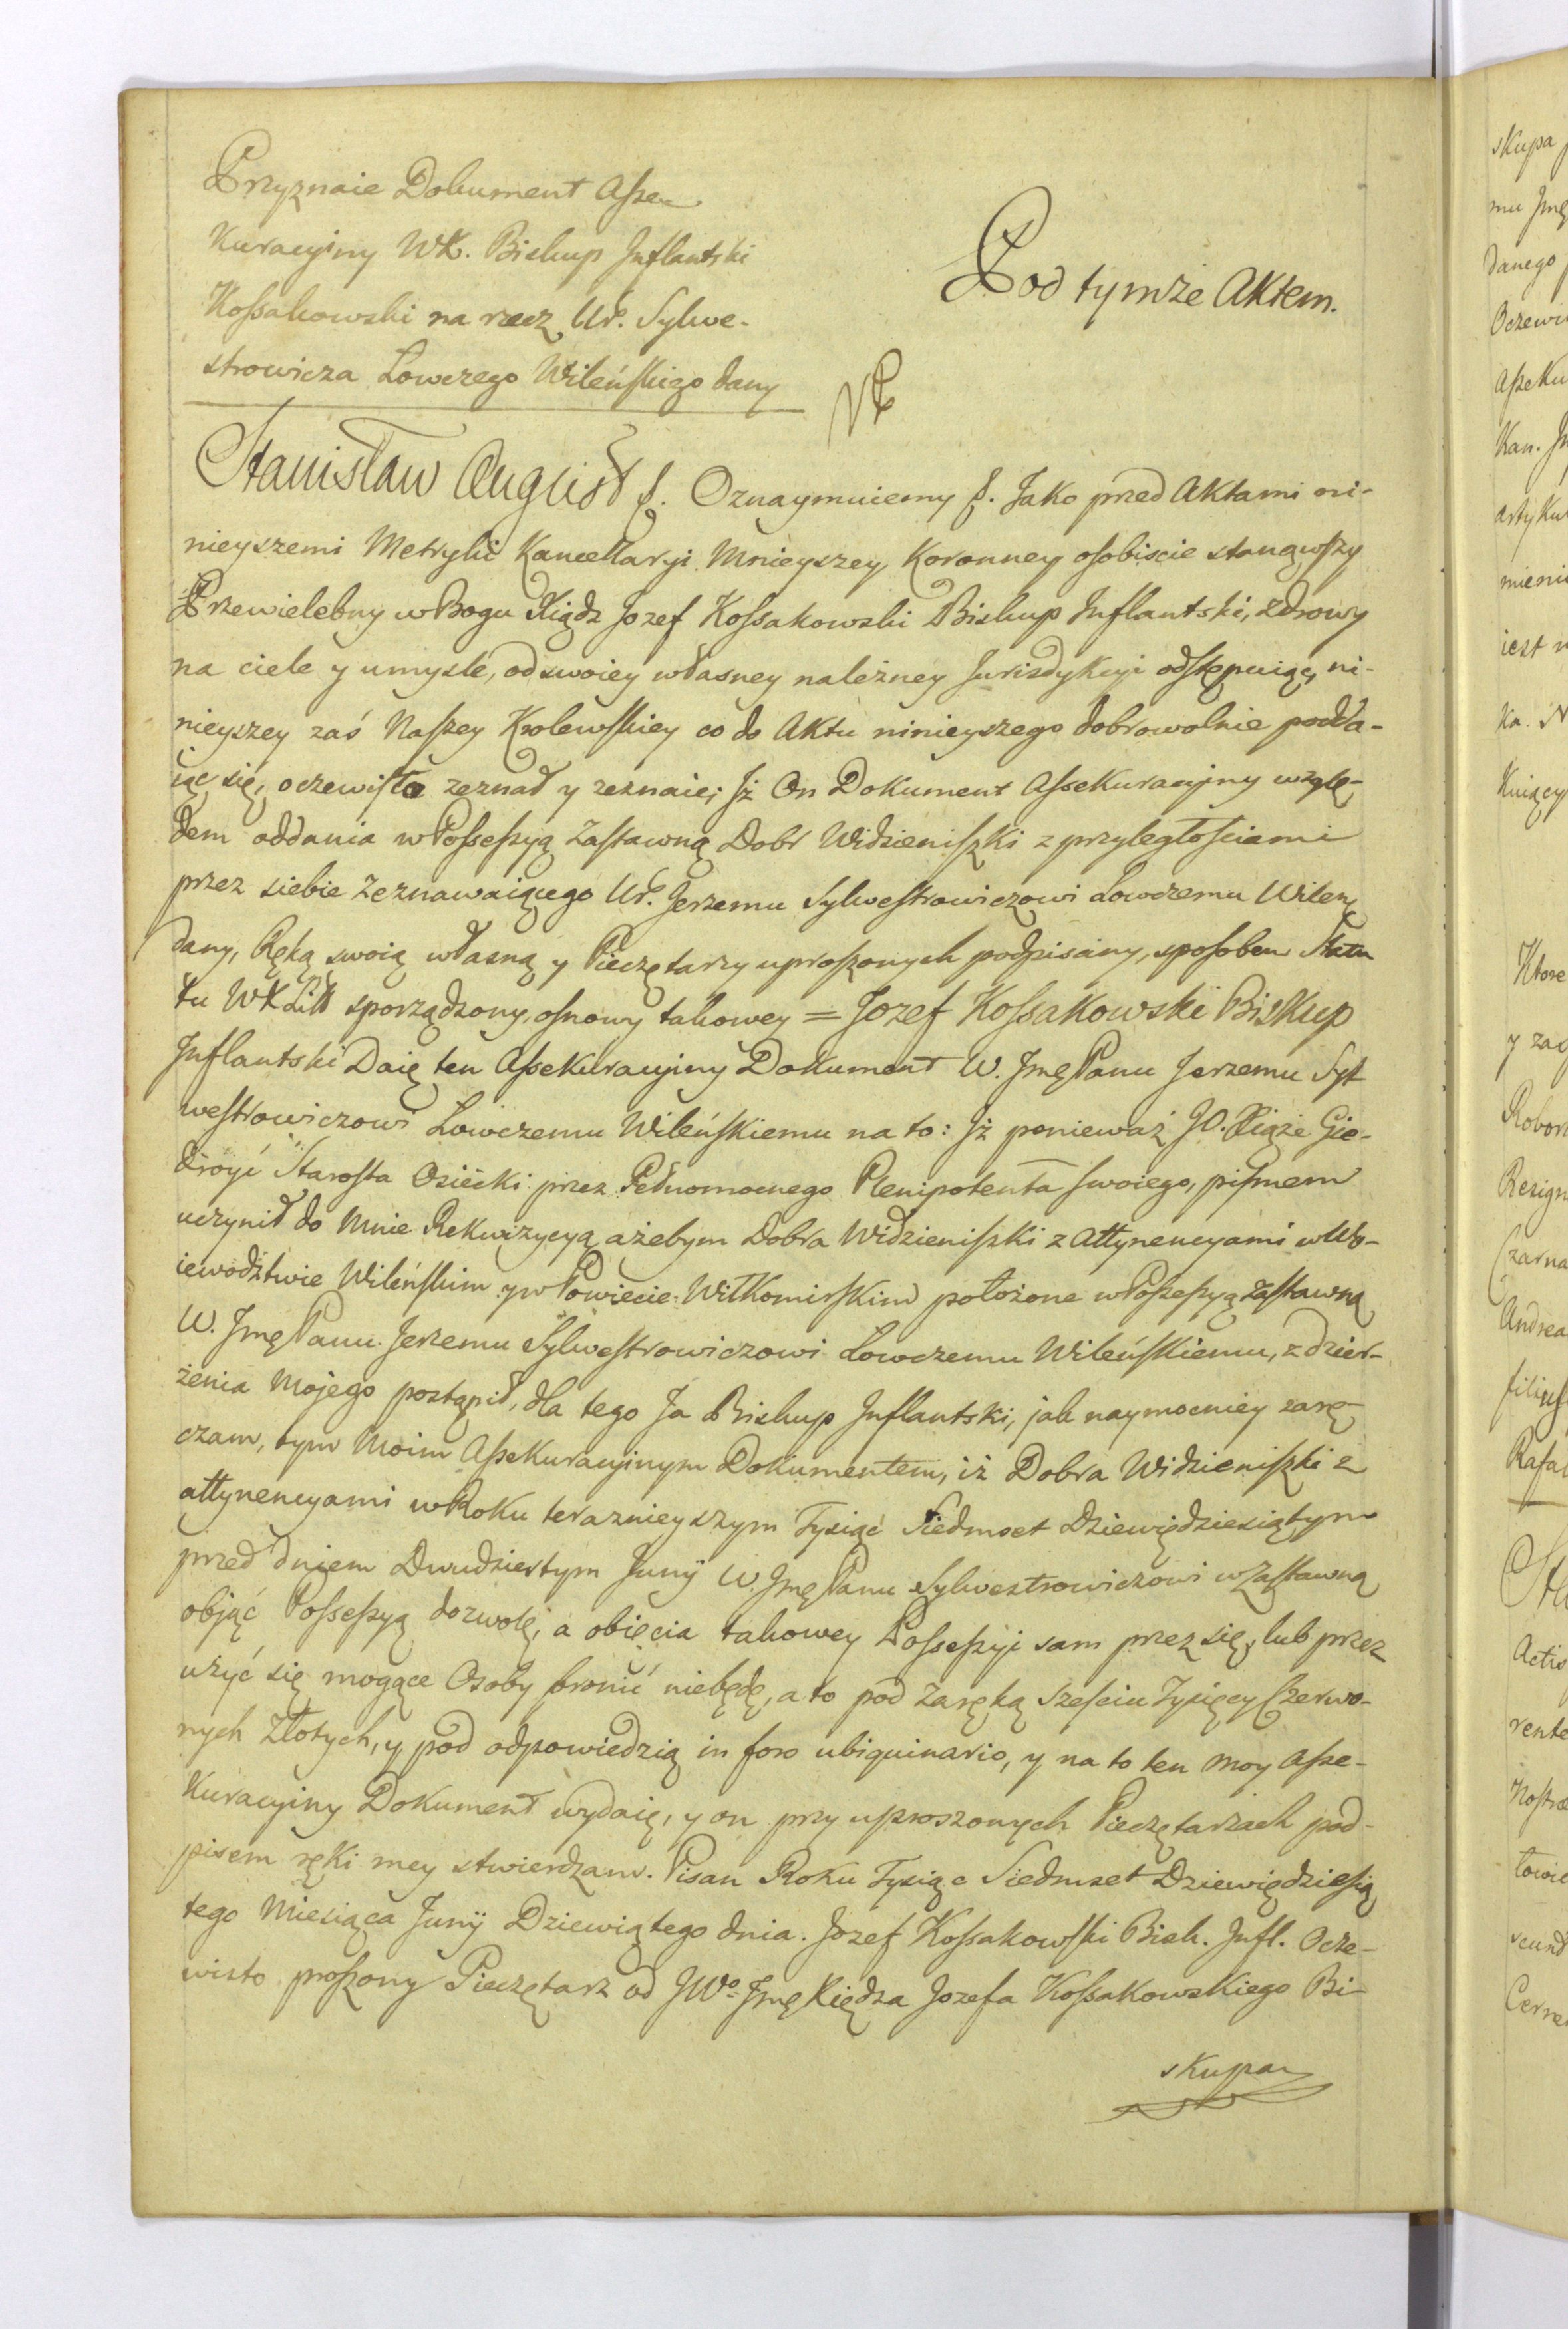 Przyznaie Dokument Asse-
kuracyiny WX. Biskup Inflantski
Kossakowski na rzecz Ur. Sylwe-
strowicza Łowczego Wileńskiego dany
Pod tymże Aktem.
Stanisław August &. Oznaymuiemy &. Jako przed Aktami ni-
nieyszemi Metryki Kancellaryi Mnieyszey Koronney osobiscie stanąwszy
Przewielebny w Bogu Xiądz Jozef Kossakowski Biskup Inflantski, zdrowy
na ciele y umysle, od swoiey własney należney Jurisdykcyi odstępuiąc, ni-
nieyszey zaś Naszey Krolewskiey co do Aktu ninieyszego dobrowolnie podda-
iąc się, oczewisto zeznał y zeznaie; Jż On Dokument Assekuracyiny wzglę-
dem oddania w Possessyą Zastawną Dobr Widzieniszki z przyległościami
przez siebie Zeznawaiącego Ur. Jerzemu Sylwestrowiczowi Łowczemu Wileń
dany, Ręką swoią własną y Pieczętarzy uproszonych podpisany, sposobem Statu
tu WXLitt sporządzony, osnowy takowey = Jozef Kossakowski Biskup
Inflantski Daię ten Assekuracyiny Dokument W. Jmę Panu Jerzemu Syl
westrowiczowi Łowczemu Wileńskiemu na to: Jż ponieważ JO. Xiąże Gie-
droyć Starosta Osiecki przez Pełnomocnego Plenipotenta swoiego, pismem
uczynił do Mnie Rekwizycyą ażebym Dobra Widzieniszki z Attynencyami w Wo-
iewodztwie Wileńskim y w Powiecie Wiłkomirskim położone w Possessyą zastawną
W. Jmę Panu Jerzemu Sylwestrowiczowi Łowczemu Wileńskiemu, z dzier-
żenia Mojego postąpił, dla tego Ja Biskup Inflantski, jak naymocniey zarę-
czam, tym Moim Assekuracyinym Dokumentem, iż Dobra Widzieniszki z
attynencyami w Roku teraznieyszym Tysiąć Siedmset Dziewiędziesiątym
przed dniem Dwudziestym Junÿ W. Jmę Panu Sylwestrowiczowi w Zastawną
objąć Possessyą dozwolę, a obięcia takowey Possessyi sam przez się, lub przez
użyć się mogące Osoby bronić niebędę, a to pod Zaręką Sześciu Tysięcy Czerwo-
nych Złotych, y pod odpowiedzią in foro ubiquinario, y na to ten moy Asse-
kuracyiny Dokument wydaię, y on przy uproszonych Pieczętarzach pod-
pisem ręki mey stwierdzam. Pisan Roku Tysiąc Siedmset Dziewiędziesią
tego Miesiąca Junÿ Dziewiątego dnia. Jozef Kossakowski Bisk. Infl. Ocze-
wisto proszony Pieczętarz od JWo Jmę Xiędza Jozefa Kossakowskiego Bi-
skupa
skupa
mu Jmę
danego
Oczewi
Asseku
Kan.
artyku
mieni
iest
ka.
Kuiący
Ktore
y zac
Robor
Rezign
Czarna
Andrea
filius
Rafa
Sta
Actis
rente
Nostra
towic
scund